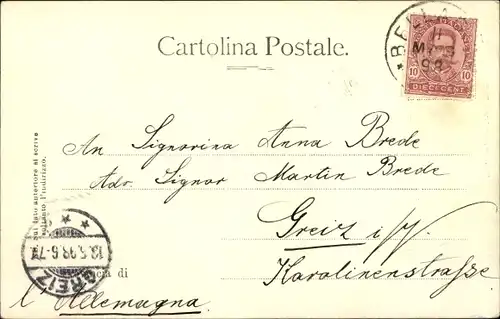 Cartolina Postale.
BELLA
11
98
10 10
DIECI CENT.
An Signorina Anna Brede
Adr. Signor Martin Brede
Greiz i/V.
Karolinenstrasse
cia di
l'Allemagna
Sul lato anteriore si scrive
soltanto l'indirizzo.
13.5.98.6-7
GREIZ